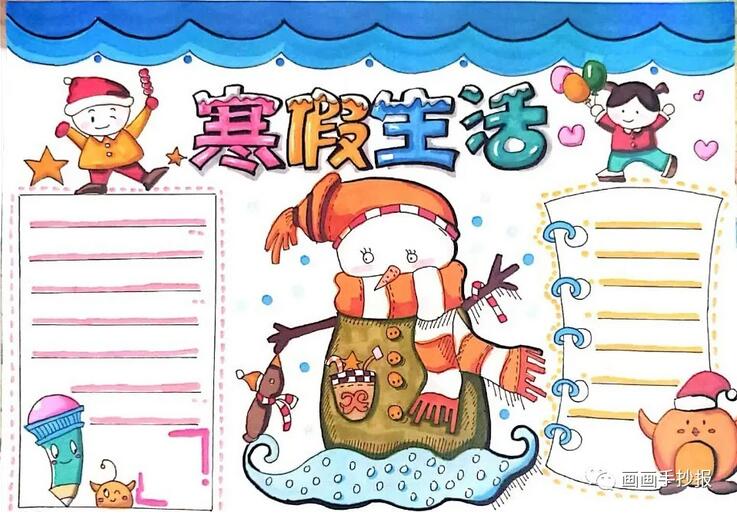 寒假生活
画画手抄报